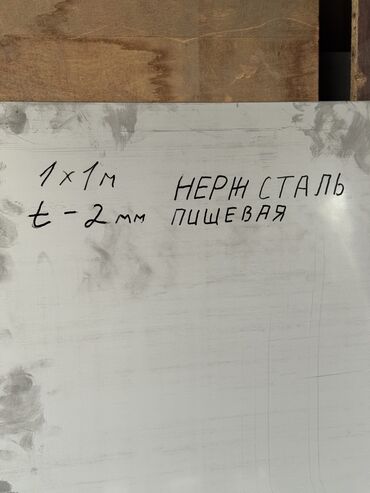 1 х 1 м НЕРЖ СТАЛЬ
t - 2 мм ПИЩЕВАЯ